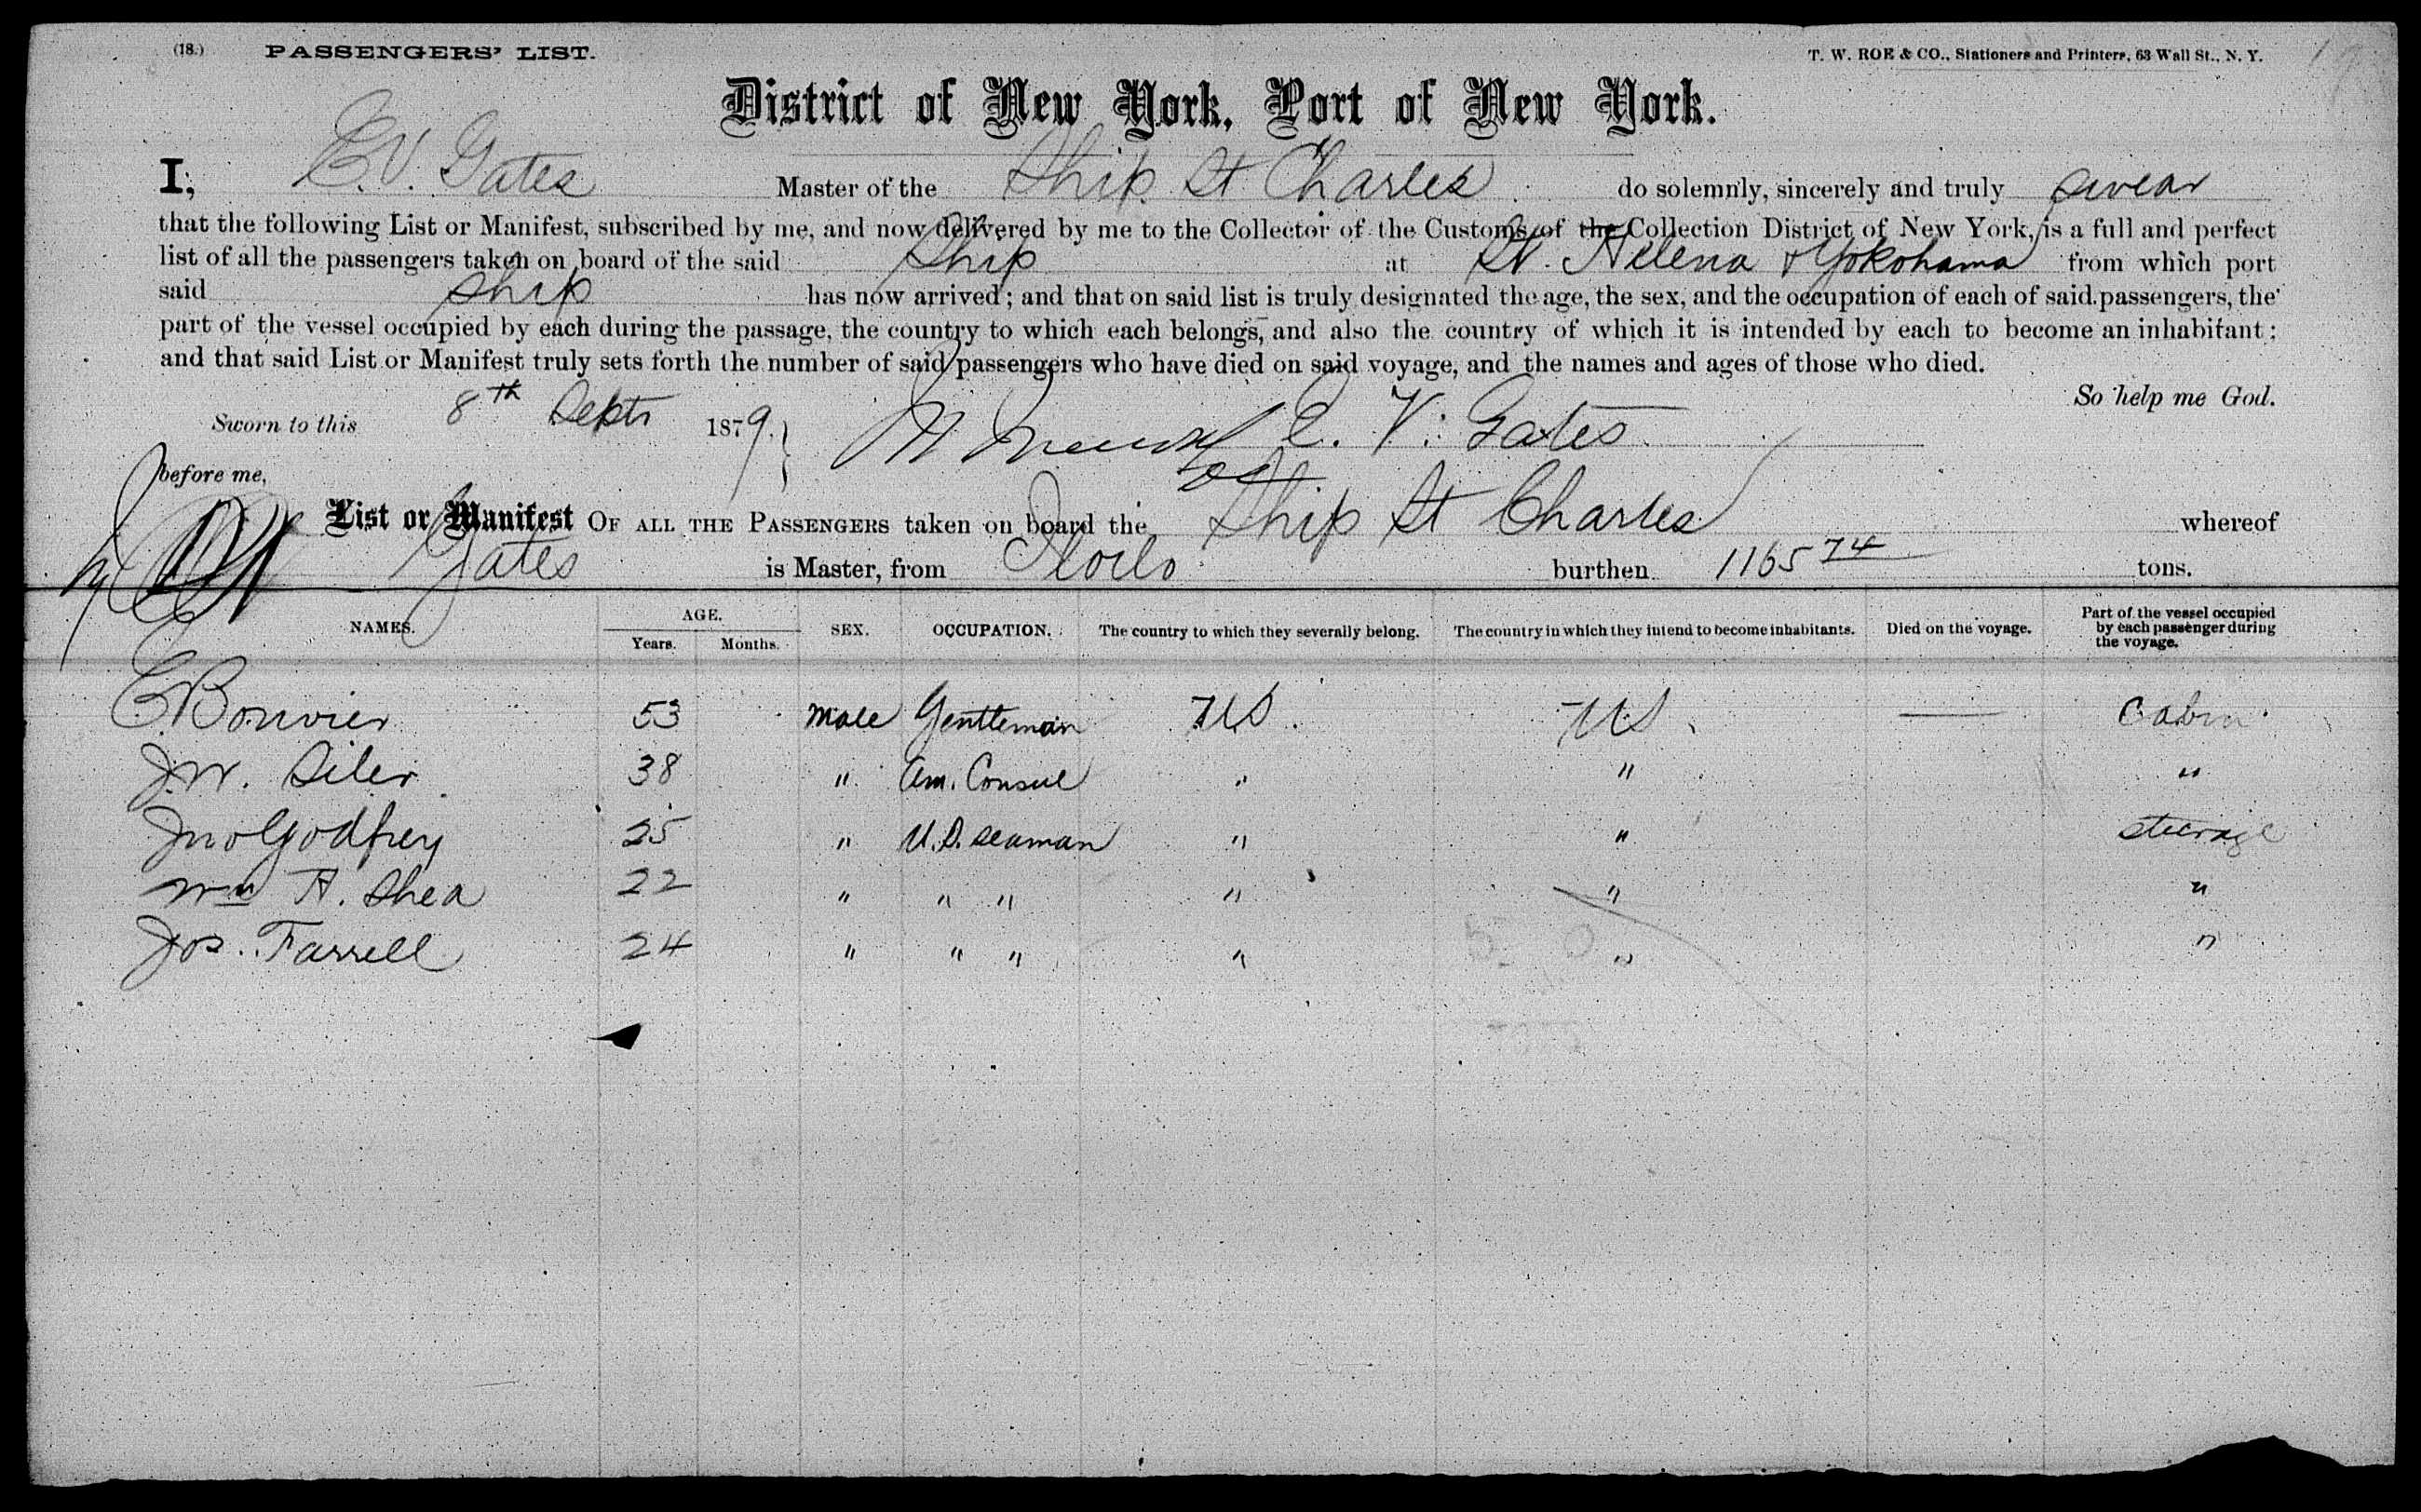 (18.) PASSENGERS' LIST. T. W. ROE & CO., Stationers and Printers, 63 Wall St., N. Y.
District of New York, Port of New York.
I, E. V. Gates Master of the Ship St Charles do solemnly, sincerely and truly swear
that the following List or Manifest, subscribed by me, and now delivered by me to the Collector of the Customs of the Collection District of New York, is a full and perfect
list of all the passengers taken on board of the said Ship at St. Helena & Yokohama from which port
said Ship has now arrived; and that on said list is truly designated the age, the sex, and the occupation of each of said passengers, the
part of the vessel occupied by each during the passage, the country to which each belongs, and also the country of which it is intended by each to become an inhabitant;
and that said List or Manifest truly sets forth the number of said passengers who have died on said voyage, and the names and ages of those who died.
So help me God.
Sworn to this 8th Sept 1879. E. V. Gates
before me,
List or Manifest OF ALL THE PASSENGERS taken on board the Ship St Charles whereof
Gates is Master, from Iloilo burthen 1165 74 tons.
NAMES. AGE. Years. Months. SEX. OCCUPATION. The country to which they severally belong. The country in which they intend to become inhabitants. Died on the voyage. Part of the vessel occupied by each passenger during the voyage.
E Bouvier 53 Male Gentleman US. US. — Cabin
J. W. Siler 38 " Am. Consul " " "
Jno Godfrey 25 " U.S. Seaman " " Steerage
Wm H. Shea 22 " " " " " "
Jos. Farrell 24 " " " " " "